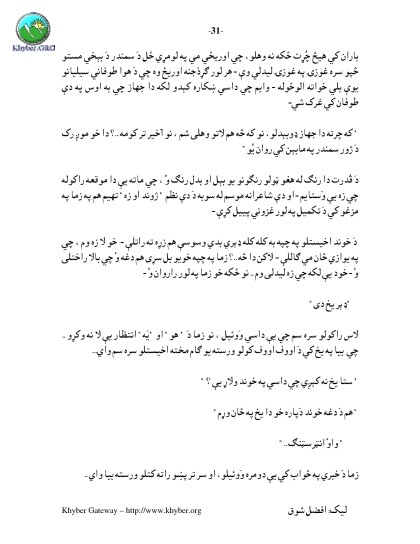 -31-
Khyber.ORG
باران کي هيڅ چُرت څکه نه وهلو ، چي اوريځي مي په لومړي ځل دَ سمندر دَ بېخي مستو
څپو سره غوزۍ په غوزۍ ليدلي وې - هر لور ګرڅنده اوريځ وه چي دَ هوا طوفاني سيليانو
يوې بلي خواته الوځوله - وايم چي داسي ښکاره کېدو لکه دا جهاز چي به اوس په دې
طوفان کي غرک شي-
"که چرته دا جهاز ډوبېدلو ، نو که څه هم لاتو وهلی شم ، نو آخېر تر کومه ..؟ دا خو مويږ رک
دَ زور سمندر په مابېن کي روان يُو"
دَ قدرت دا رنګ له هغو ټولو رنګونو يو بېل او بدل رنګ وُ ، چي ماته يې دا موقعه راکوله
چي زه يې وَستايم - او دې شاعرانه موسم له سوبه دَ دې نظم "ژوند او زه" تهيم هم په زما په
مزغو کي دَ تکميل په لور غزونې پيېل کړې-
دَ خوند اخيستلو په چپه به کله کله ډېرې بدې وسوسې هم زړه ته راتلې - خو لا زه وم ، چي
په يوازي ځان مي ګاللې - لاکن دا څه ..؟ زما په چپه خويو بل سړی هم دغه وُ چي بالا راختلی
وُ - خود يې لکه چي زه ليدلی وم.. نو ځکه خو زما په لور راروان وُ -
"ډېر يخ دی"
لاس راکولو سره سم چي يې داسي وَوئيل ، نو زما دَ "هو" او "يَه" انتظار يې لا نه وکړو ..
چي بيا په يخ کي دَ اووف اووف کولو ورسته يو ګام مخته اخيستلو سره سم وايي..
"ستا يخ نه کېږي چي داسي په خوند ولاړ يې؟"
"هم دَ دغه خوند دَپاره خو دا يخ په ځان وړم"
"واوُ انټرسټنګ.."
زما دَ خبري په ځواب کي يې دومره وَوئيلو ، او سر تر پښو راته کتلو ورسته بيا وای-
Khyber Gateway – http://www.khyber.org
ليک: افضل شوق